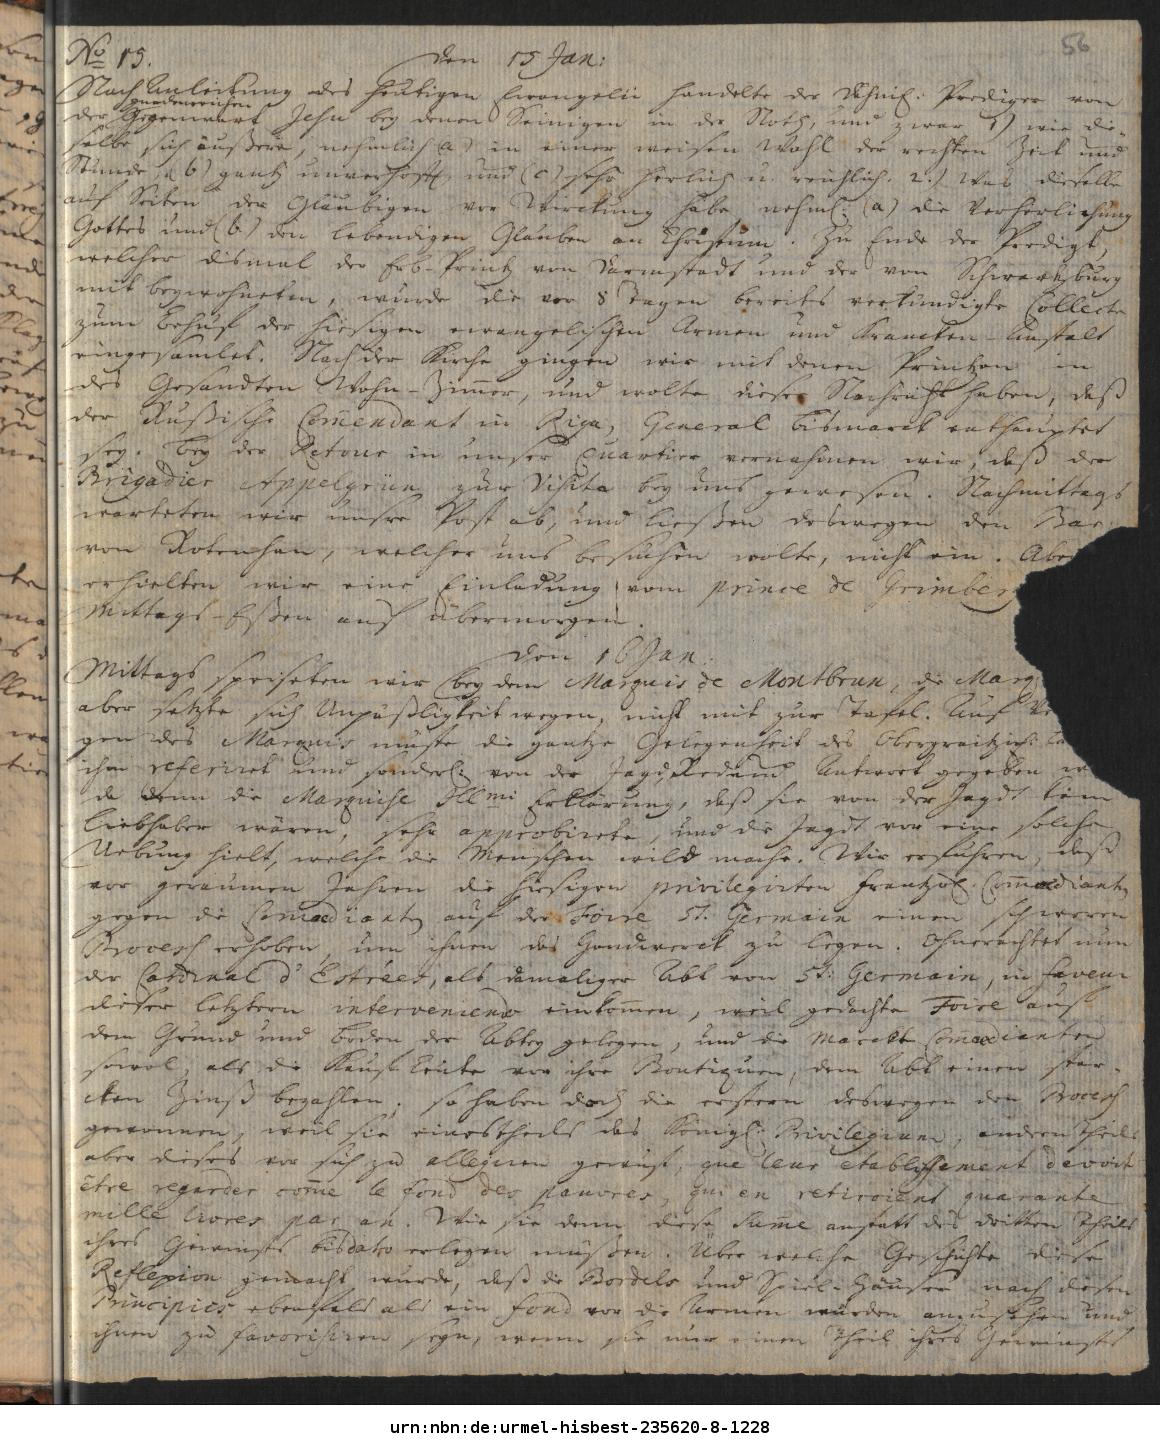 56
No 15. den 15 Jan:
Nach Anleitung des heutigen Evangelii handelte der Dähnis: Prediger von
gnadenreichen
der Gegenwart Jesu bey denen Seinigen in der Noth, und zwar 1) wie die-
selbe sich äußere, nehmlich (a) in einer weisen Wahl der rechten Zeit und
Stunde, (b) gantz unverhofft, und (c) sehr herlich u. reichlich. 2.) Was dieselbe
auf Seiten der Gläubigen vor Wirckung habe, nehml: (a) die Verherlichung
Gottes und (b) den lebendigen Glauben an Christum. Zu Ende der Predigt,
welcher dismal der Erb-Printz von Darmstadt und der von Schwartzburg
mit beywohneten, wurde die vor 8 Tagen bereits verkündigte Collecte
zum Behuf der hiesigen evangelischen Armen und Krancken-Anstalt
eingesamlet. Nach der Kirche gingen wir mit denen Printzen in
des Gesandten Wohn-Zimer, und wolte dieser Nachricht haben, daß
der Rußische Comendant in Riga, General Bismarck enthauptet
sey. Bey der Retour in unser Quartier vernahmen wir, daß der
Brigadier Appelgrün zur Visite bey uns gewesen. Nachmittags
warteten wir unsre Post ab, und ließen deswegen den Bar
von Rotenhan, welcher uns besuchen wolte, nicht ein. Abe
erhielten wir eine Einladung vom prince de Grimber
Mittags-Eßen auf übermorgen.
den 16 Jan.
Mittags speiseten wir bey dem Marquis de Montbrun, die Marq
aber setzte sich Unpäßligkeit wegen, nicht mit zur Tafel. Auf Ve
gen des Marquis muste die gantze Gelegenheit des Obergraitzis:
ihm referiret und sonderl: von der Jagd Red und Antwort gegeben
da denn die Marquise Illmi Erklärung, daß sie von der Jagdt kein
Liebhaber wären, sehr approbirete, und die Jagdt vor eine solche
Uebung hielt, welche die Menschen wild mache. Wir erfuhren, daß
vor geraumen Jahren die hiesigen privilegirten Frantzös. Comoedianten
gegen die Comoedianten auf der Foire St. Germain einen schweren
Process erhoben, um ihnen das Handwerck zu legen. Ohnerachtet nun
der Cardinal d'Estrées, als damaliger Abt von St: Germain, in faveur
dieser letztern interveniendo einkomen, weil gedachte Foire auf
dem Grund und Boden der Abtey gelegen, und die Marckt Comoedianten
sowol, als die Kauf Leute vor ihre Boutiquen, dem Abt einen star-
cken Zinß bezahlen; so haben doch die erstern deswegen den Process
gewonnen, weil sie einestheils das Königl: Privilegium, andern Theils
aber dieses vor sich zu allegiren gewust, que leur etablissement devoit
être regarder come le fond des pauvres, qui en retiroient quarante
mille livres par an. Wie sie denn diese Sume anstatt des dritten Theils
ihres Gewinsts bisdato erlegen müßen. Über welche Geschichte diese
Reflexion gemacht wurde, daß die Bordels und Spiel-Häuser nach diesen
Principies ebenfals als ein fond vor die Armen würden anzusehen und
ihnen zu favorisiren seyn, wenn sie nur einen Theil ihres Gewinsts
urn:nbn:de:urmel-hisbest-235620-8-1228